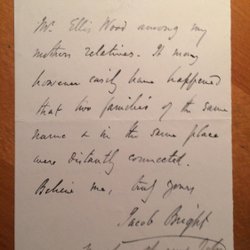 Mr. Ellis Wood among my
mothers relatives. It may
however easily have happened
that two families of the same
name & in the same place
were distantly connected.
Believe me, truly yours
Jacob Bright